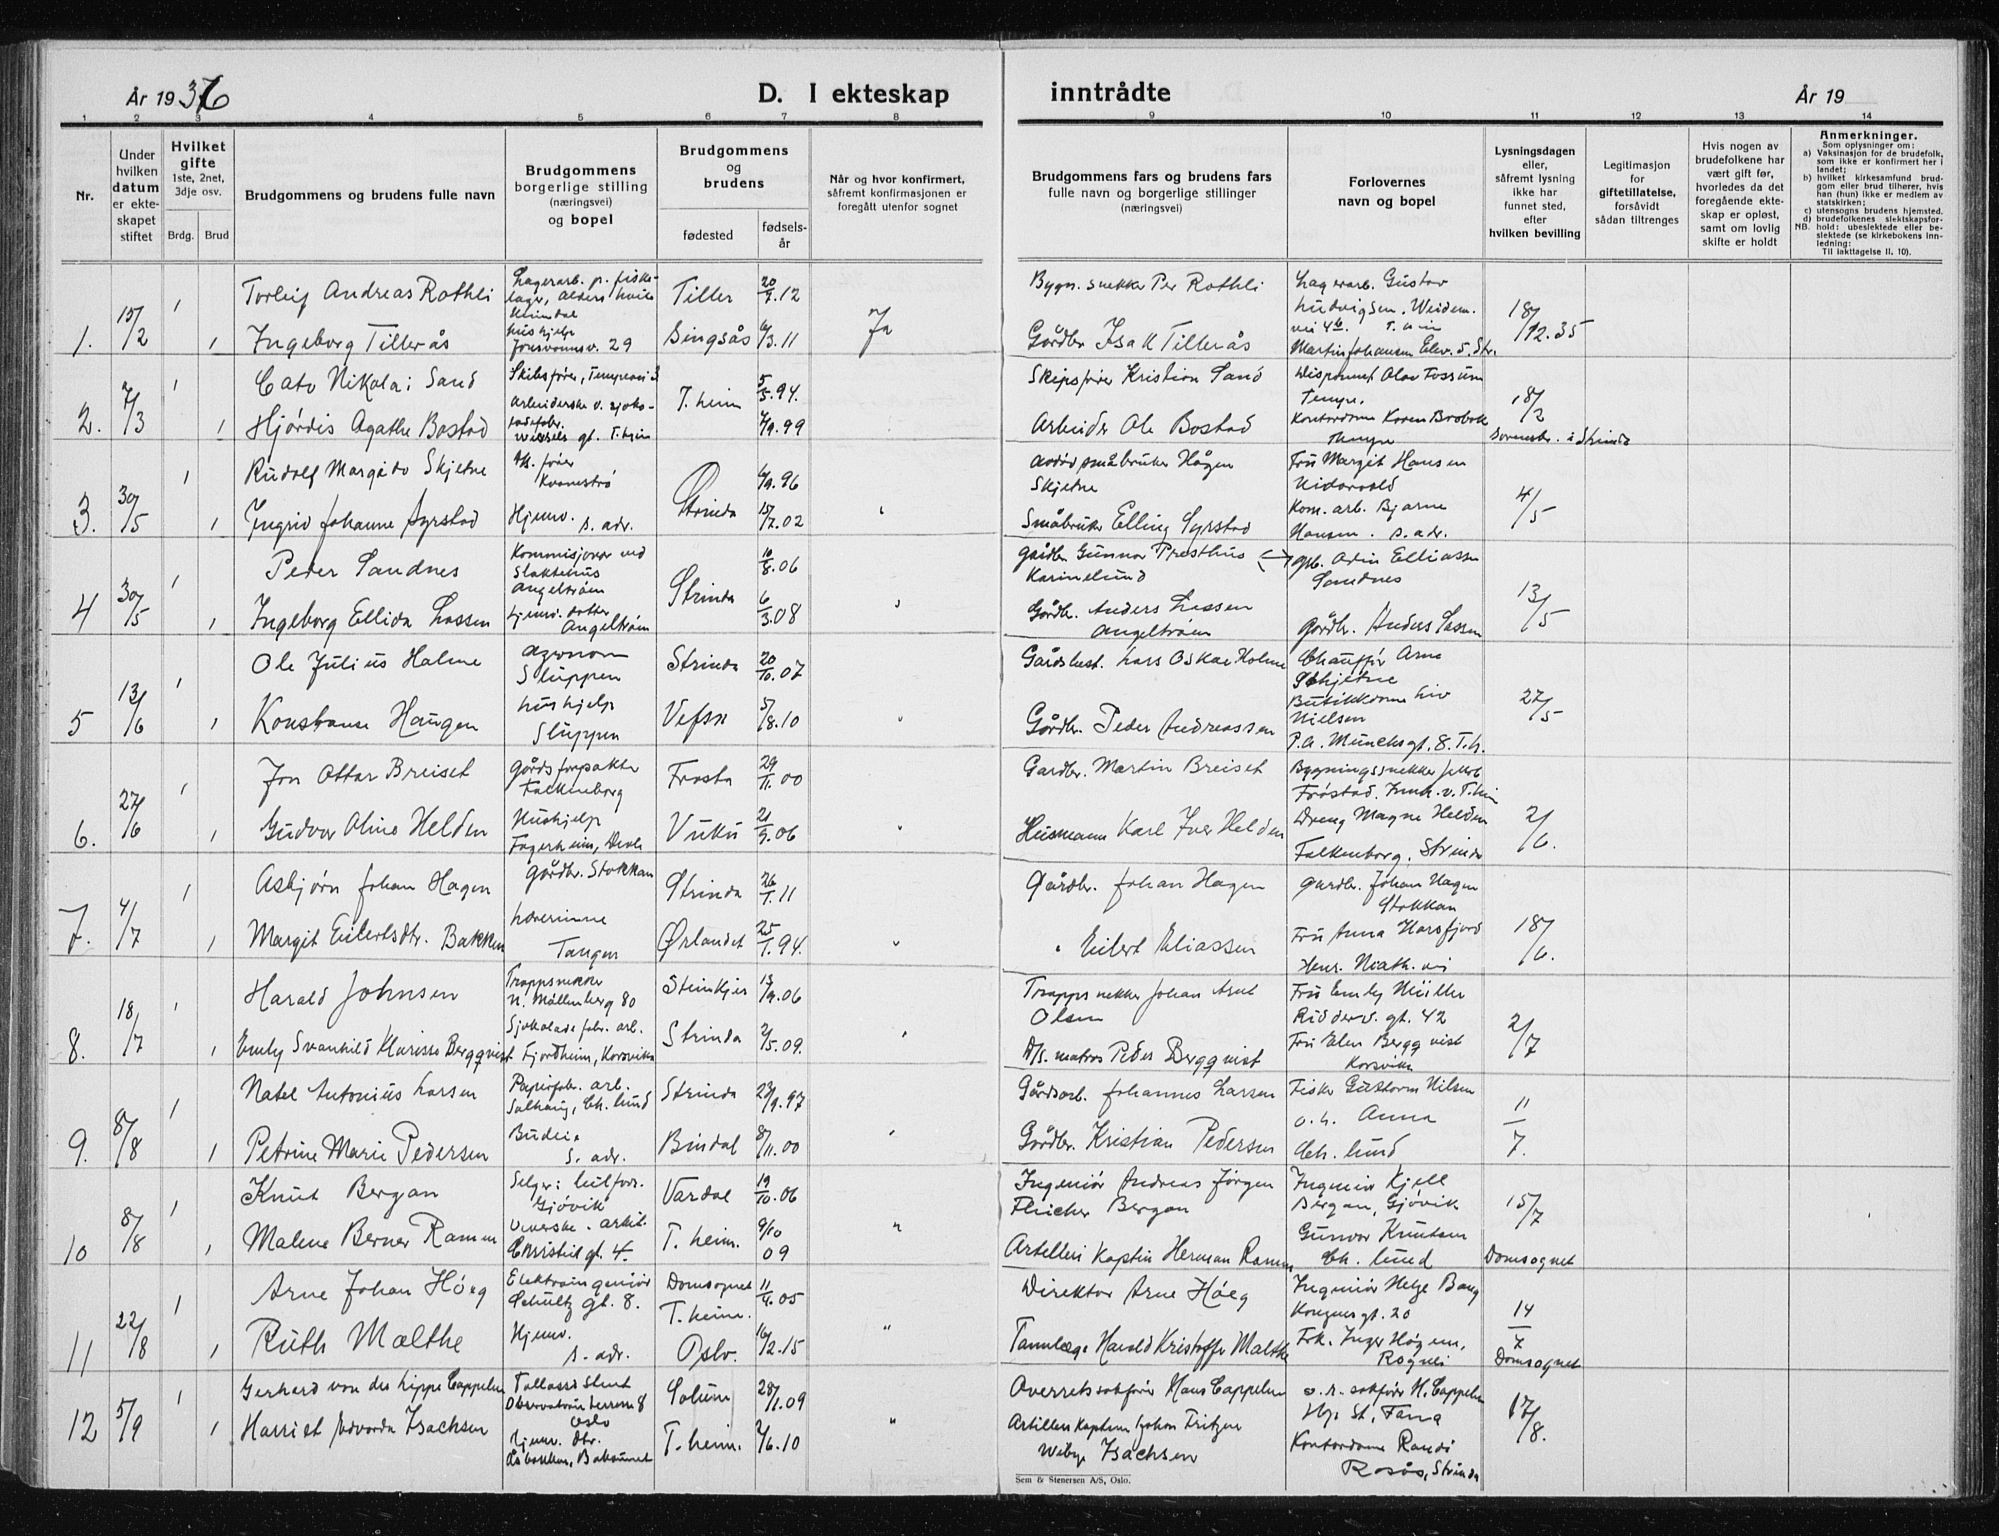 År 1936
D. I ekteskap inntrådte
År 19
1 2 3 4 5 6 7 8 9 10 11 12 13 14
Nr.
Under hvilken datum er ekteskapet stiftet
Hvilket gifte 1ste, 2net, 3dje osv.
Brdg. Brud
Brudgommens og brudens fulle navn
Brudgommens borgerlige stilling (næringsvei) og bopel
Brudgommens og brudens
fødested
fødselsår
Når og hvor konfirmert, såfremt konfirmasjonen er foregått utenfor sognet
Brudgommens fars og brudens fars fulle navn og borgerlige stillinger (næringsvei)
Forlovernes navn og bopel
Lysningsdagen eller, såfremt lysning ikke har funnet sted, efter hvilken bevilling
Legitimasjon for giftetillatelse, forsåvidt sådan tiltrenges
Hvis nogen av brudefolkene har vært gift før, hvorledes da det foregående ekteskap er opløst, samt om lovlig skifte er holdt
Anmerkninger.
Som oplysninger om:
a) Vaksinasjon for de brudefolk, som ikke er konfirmert her i landet;
b) hvilket kirkesamfund brudgom eller brud tilhører, hvis han (hun) ikke er medlem av statskirken;
c) utensogns brudens hjemsted.
d) brudefolkenes slektskapsforhold: ubeslektede eller beslektede (se kirkebokens innledning:
NB. Til iakttagelse II. 10).
1. 15/2 1 Torleif Andreas Rothli Lagerarb. p. fiskelager, Tiller 20/7.12 Bygn. snekker Per Rothli Lagerarb. Gustav Ludvigsen, 18/12.35
1 Ingeborg Tillerås hushjelp Jonsvannsv. 29 Singsås 6/3.11 Ja Gårdbr. Isak Tillerås Martin Johansen
2. 7/3 1 Cato Nikolai Sand Skibsfører, T.heim 5/5.94. Skipsfører Kristian Sand Disponent Olav Fossum Tempe. 18/2
1 Hjørdis Agathe Bostad Arbeiderske v. sjokoladefabr. T.heim 7/9.99 Arbeider Ole Bostad Kontordame Karen Tempe
3. 30/5 1 Rudolf Margido Skjetne fører 6/9.96 småbruker Hågen Skjetne Fru Margit Hansen Nidarvold 4/5
1 Ingrid Johanne Syrstad Hjemv. s. adr. Strinda 15/7.02 " Småbruker Elling Syrstad Kom. arb. Bjarne Hansen. s. adr.
4 30/5 1 Peder Sandnes Kommisjonær ved Slaktehus Angeltrøen 10/8.06 gårdbr. Gunnar Presthus Karinelund gbr. Odin Elliassen Sandnes 13/5
1 Ingeborg Ellida Lassen hjemv. datter Angeltrøen Strinda 6/3.08 " Gårdbr. Anders Lassen Angeltrøen Gårdbr. Anders Lassen
5 13/6 1 Ole Julius Holme agronom Sluppen Strinda 20/10.07 Gårdsbest. Lars Oskar Holme Chauffør Arne Skjetne 27/5
1 Konstanse Haugen hushjelp Sluppen Vefsn 5/8.10 " Gårdbr. Peder Andreassen Butikkdame Liv Nielsen P.A. Munchs gt. 8. T.h.
6. 27/6 1 Jon Ottar Breiset gårdsforpakter Falkenborg Frosta 29/11.00 Gardbr. Martin Breiset Bygningssnekker Jakob Frøstad. 2/6.
1 Gudvor Oline Helden Hushjelp Fagerheim, Vuku 21/9.06 " Husmann Karl Iver Helden Dreng Magne Helden Falkenborg, Strinda
7. 4/7 1 Asbjørn Johan Hagen gårdbr. Stokkan Strinda 26/1.11 Gårdbr. Johan Hagen Gardbr. Johan Hagen Stokkan 18/6.
1 Margit Eilertsdtr. Bakken Lærerinne Tangen Ørlandet 25/1.94. " " Eilert Eliassen Fru Anna Harsfjord Henr. Math. vei
8. 18/7 1 Harald Johnsen Trappsnekker N. Møllenberg 80 Steinkjer 13/9.06 Trappsnekker Johan Axel Olsen Fru Emly Müller Ridderv. gt. 42 2/7
1 Emly Svanhild Klarisse Bergqvist Sjokolade fabr. arb. Fjordheim, Korsvika Strinda 2/5.09. " matros Peder Bergqvist Fru Elen Bergqvist Korsvika
9. 8/8 1 Natel Antonius Larsen Papirfabr. arb. Solhaug, Ch. lund Strinda 23/9.97 Gårdsarb. Johannes Larsen Fisker Guttorm Nilsen 11/7.
1 Petrine Marie Pedersen Budeie s. adr. Bindal 8/11.00 " Gårdbr. Kristian Pedersen o.h. Anna Ch. lund
10 8/8 1 Knut Bergan Selger: Gjøvik Vardal 19/10.06 Ingeniør Andreas Jørgen Fleicher Bergan Ingeniør Kjell Bergan, Gjøvik 15/7
1 Malene Berner Ramm arkit. gt. 4. T. heim. 9/10 09 " Artilleri Kaptein Herman Ramm Gunvor Knutsen Ch. lund Domsognet
11 22/8 1 Arne Johan Høeg Elektroingeniør Schultz gt. 8. Domsognet T.heim. 11/4.05 Direktør Arne Høeg Ingeniør Helge Bang Kongens gt. 20 14/7
1 Ruth Malthe Hjemv. s. adr. Oslo. 16/2.15 " Tannlæge Harald Kristoffer Malthe Frk. Inger Høgem, Rognli Domsognet
12 5/9 1 Gerhard von der Lippe Cappelen Observatorie terrasse 8 Oslo Solum 28/1.09 Overretssakfører Hans Cappelen o.r. sakfører H. Cappelen St, Fana 17/8.
1 Harriet Edvarda Isachsen hjemv. dtr. Åsbakken, Bakaunet T.heim. 2/6.10 " Artilleri Kaptein Johan Fritzner Wibye Isachsen Kontordame Randi Rosås, Strinda
Sem & Stenersen A/S, Oslo.